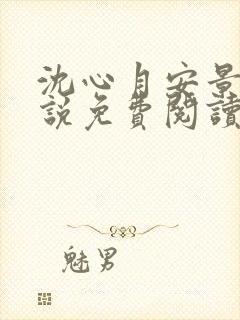 沈心自安景
說免費閱讀
魅男